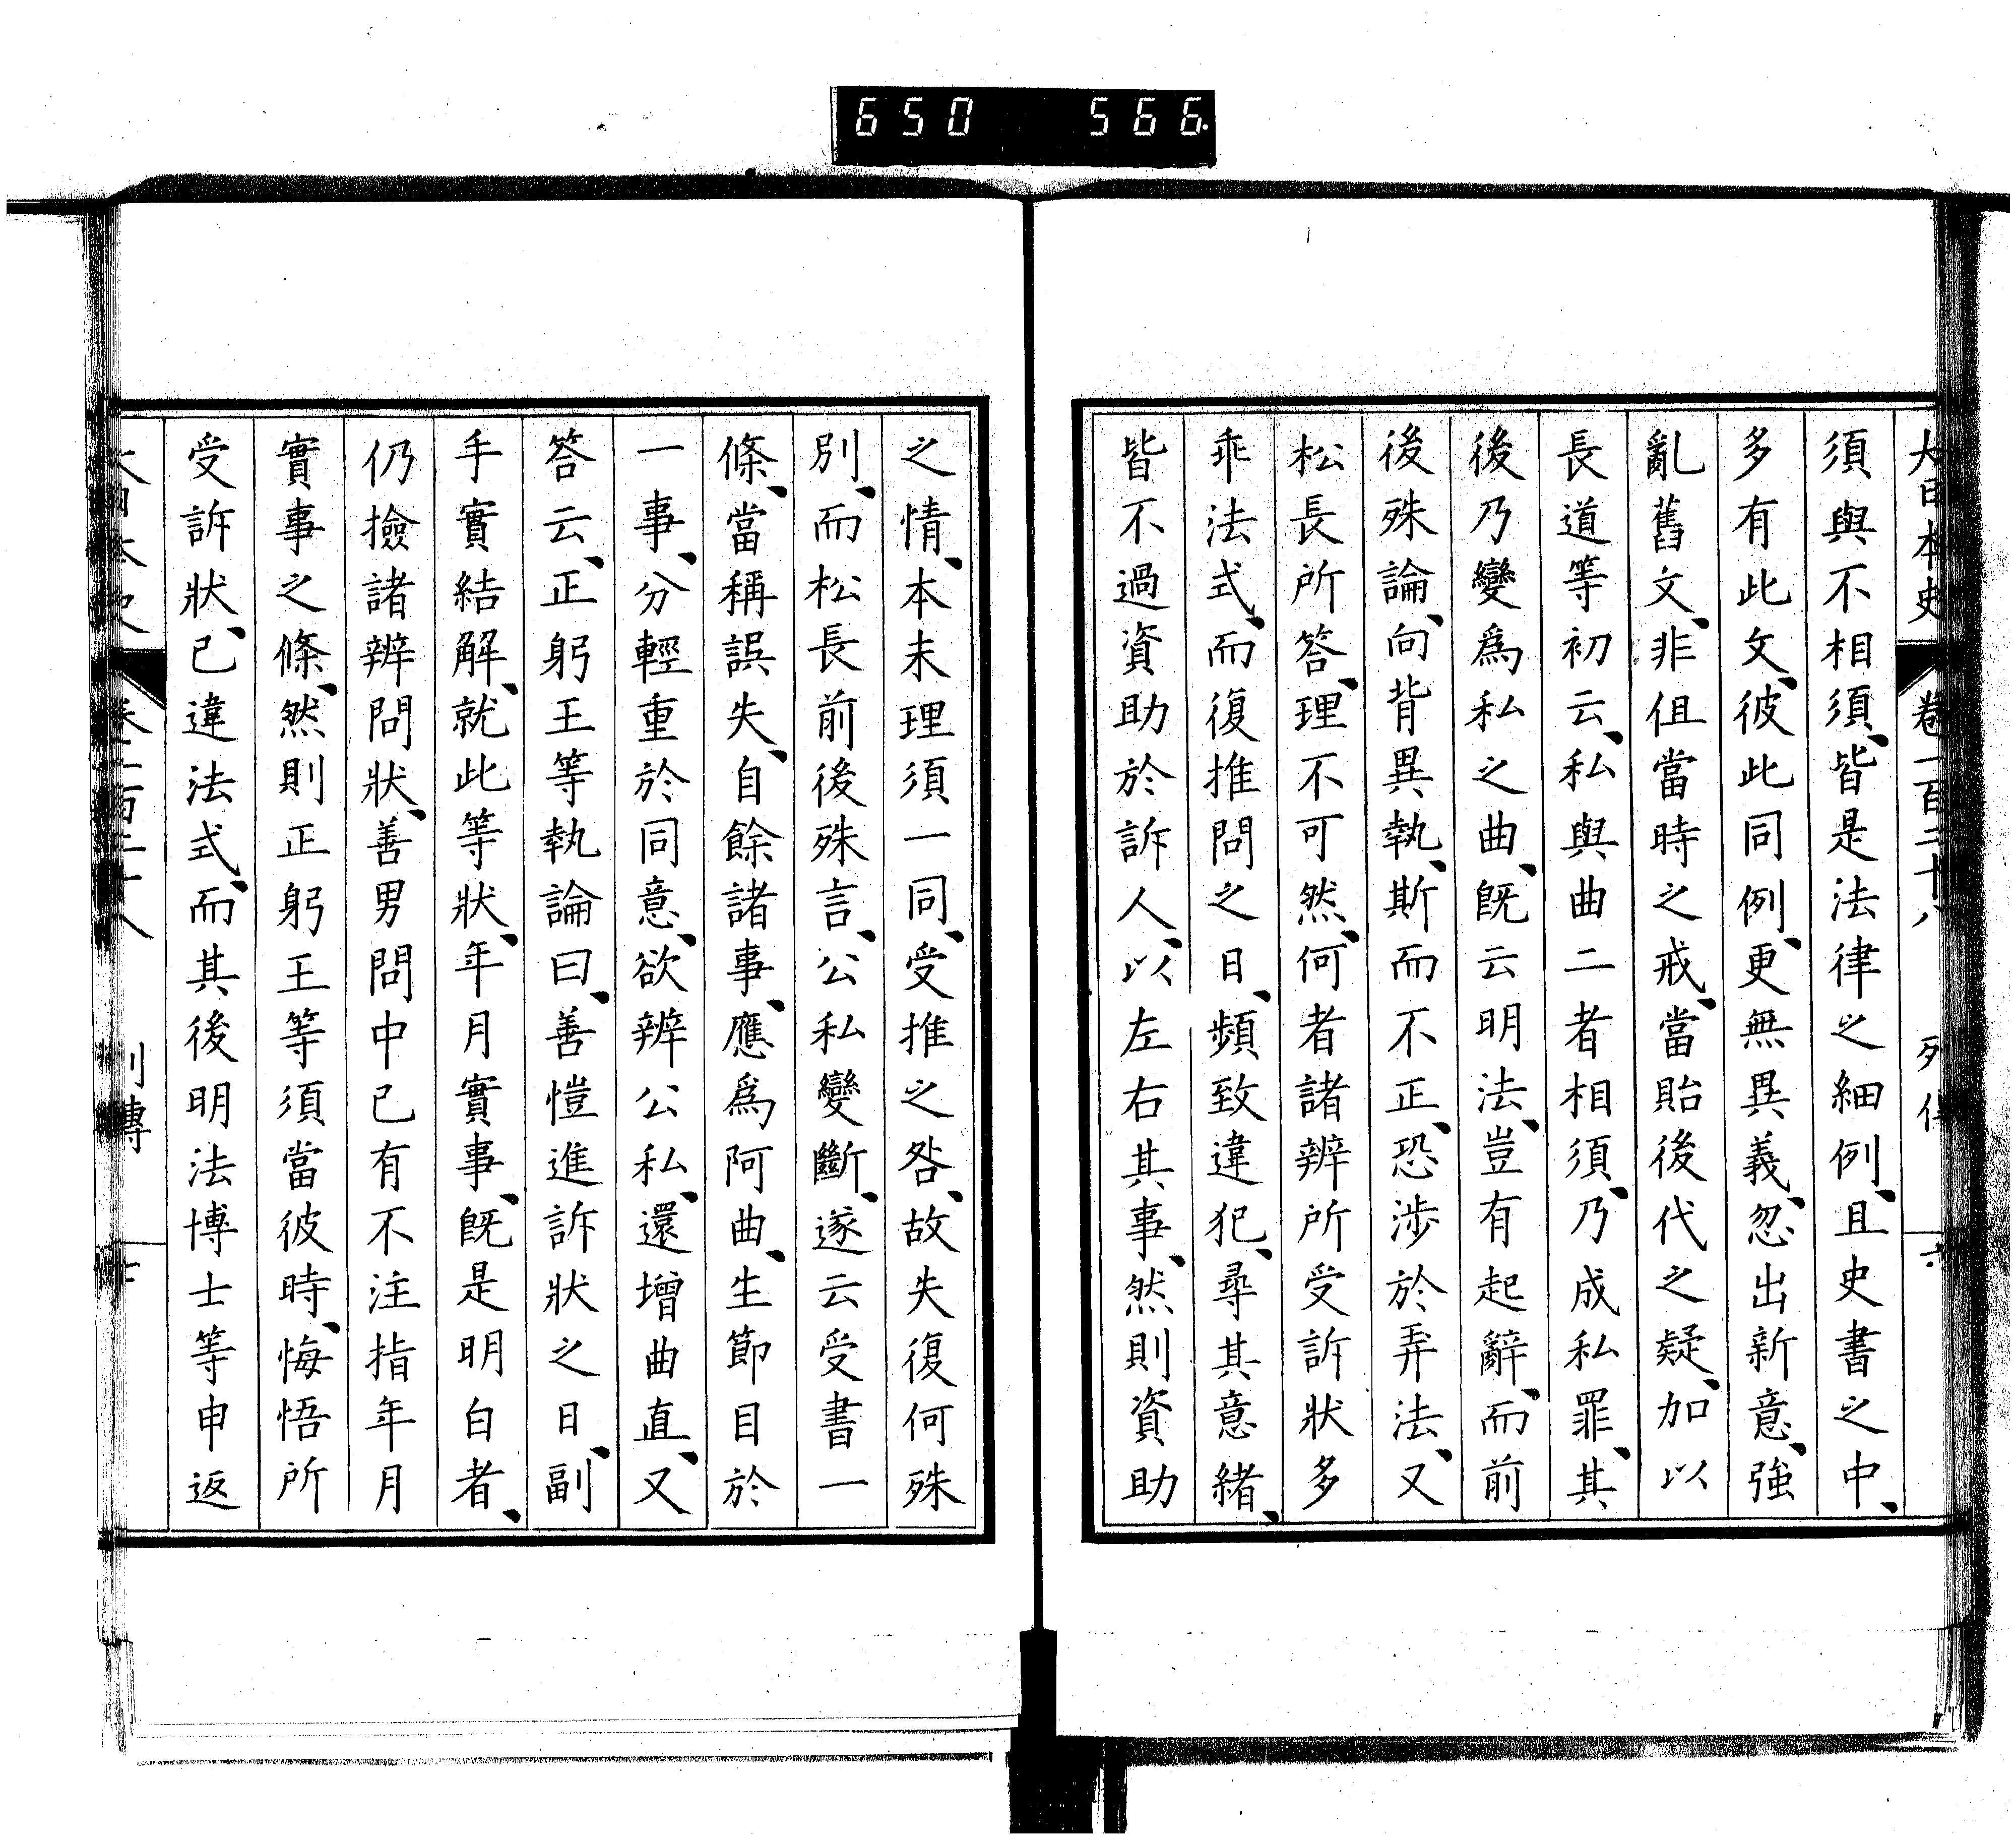 650 566
大日本史 卷一百二十八 列傳 六
須與不相須、皆是法律之細例、且史書之中、
多有此文、彼此同例、更無異義、忽出新意、強
亂舊文、非伹當時之戒、當貽後代之疑、加以
長道等初云、私與曲二者相須、乃成私罪、其
後乃變爲私之曲、旣云明法、豈有起辭、而前
後殊論、向背異執、斯而不正、恐涉於弄法、又
松長所答、理不可然、何者諸辨所受訴狀多
乖法式、而復推問之日、頻致違犯、尋其意緒、
皆不過資助於訴人、以左右其事、然則資助
之情、本末理須一同、受推之咎、故失復何殊
別、而松長前後殊言、公私變斷、遂云受書一
條、當稱誤失、自餘諸事、應爲阿曲、生節目於
一事、分輕重於同意、欲辨公私、還增曲直、又
答云、正躬王等執論曰、善愷進訴狀之日、副
手實結解、就此等狀、年月實事、旣是明白者、
仍撿諸辨問狀、善男問中已有不注指年月
實事之條、然則正躬王等須當彼時、悔悟所
受訴狀、已違法式、而其後明法博士等申返
大日本史 卷一百二十八 列傳 七